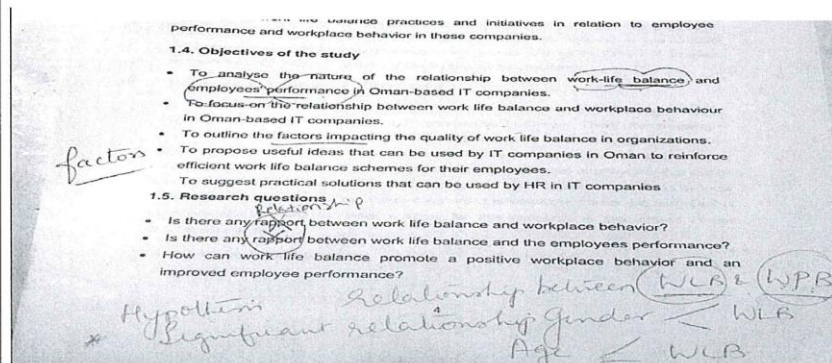 balance practices and initiatives in relation to employee
performance and workplace behavior in these companies.
1.4. Objectives of the study
• To analyse the nature of the relationship between work-life balance and
employees' performance in Oman-based IT companies.
• To focus on the relationship between work life balance and workplace behaviour
in Oman-based IT companies.
• To outline the factors impacting the quality of work life balance in organizations.
factors
• To propose useful ideas that can be used by IT companies in Oman to reinforce
efficient work life balance schemes for their employees.
To suggest practical solutions that can be used by HR in IT companies
1.5. Research questions
Relationship
• Is there any rapport between work life balance and workplace behavior?
• Is there any rapport between work life balance and the employees performance?
• How can work life balance promote a positive workplace behavior and an
improved employee performance?
Hypothesis relationship between WLB & WPB
4
* Significant relationship Gender < WLB
Age < WLB